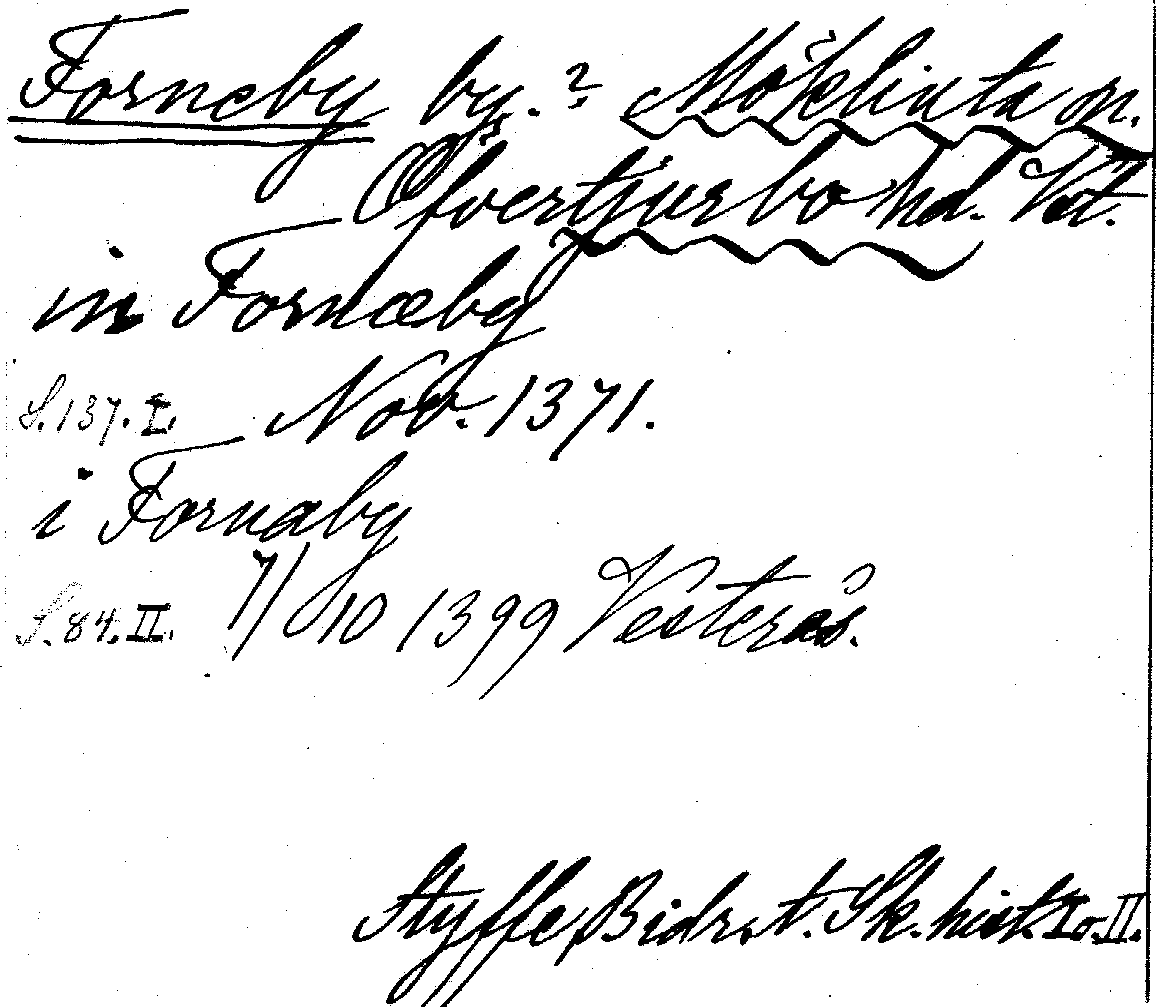 Forneby by.? Möklinta sn.
Öfvertjurbo hd. Vstl.
in Fornæby
S. 137. I. Nov. 1371.
i Fornaby
S. 84. II. 7/10 1399 Vesterås.
Styffe, Bidr. t. Sk. hist. I o. II.